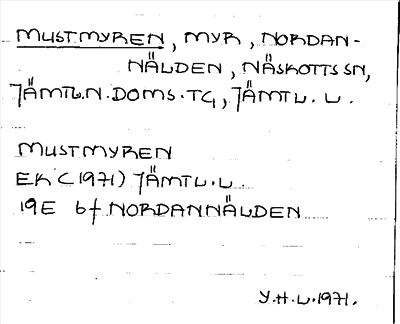 MUSTMYREN, MYR, NORDAN-
NÄLDEN, NÄSKOTTS SN,
JÄMTL.N.DOMS.TG, JÄMTL.L.
MUSTMYREN
EK (1971) JÄMTL.L.
19E 6f NORDANNÄLDEN
Y.H.L.1971.